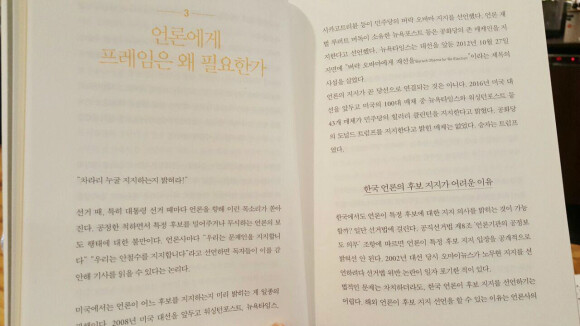 3
언론에게
프레임은 왜 필요한가
"차라리 누굴 지지하는지 밝혀라!"
선거 때, 특히 대통령 선거 때마다 언론을 향해 이런 목소리가 쏟아
진다. 공정한 척하면서 특정 후보를 밀어주거나 무시하는 언론의 보
도 행태에 대한 불만이다. 언론사마다 "우리는 문재인을 지지합니
다" "우리는 안철수를 지지합니다"라고 선언하면 독자들이 이를 감
안해 기사를 읽을 수 있다는 논리다.
미국에서는 언론이 어느 후보를 지지하는지 미리 밝히는 게 일종의
2008년 미국 대선을 앞두고 워싱턴포스트, 뉴욕타임스,
시카고트리뷴 등이 민주당의 버락 오바마 지지를 선언했다. 언론 재
벌 루퍼트 머독이 소유한 뉴욕포스트 등은 공화당의 존 매케인을 지
지한다고 선언했다. 뉴욕타임스는 대선을 앞둔 2012년 10월 27일
지면에 "버락 오바마에게 재선을"이라는 제목의
사설을 실었다.
언론의 지지가 곧 당선으로 연결되는 것은 아니다. 2016년 미국 대
선을 앞두고 미국의 100대 매체 중 뉴욕타임스와 워싱턴포스트 등
43개 매체가 민주당의 힐러리 클린턴을 지지한다고 밝혔다. 공화당
의 도널드 트럼프를 지지한다고 밝힌 매체는 없었다. 승자는 트럼프
였다.
한국 언론의 후보 지지가 어려운 이유
한국에서도 언론이 특정 후보에 대한 지지 의사를 밝히는 것이 가능
할까? 일단 선거법에 걸린다. 공직선거법 제8조 '언론기관의 공정보
도 의무' 조항에 따르면 언론이 특정 후보 지지 입장을 공개적으로
밝혀선 안 된다. 2002년 대선 당시 오마이뉴스가 노무현 지지를 선
언하려다 선거법 위반 논란이 일자 포기한 적이 있다.
법적인 문제는 차치하더라도, 한국 언론이 후보 지지를 선언하기는
어렵다. 해외 언론이 후보 지지 선언을 할 수 있는 이유는 언론사의